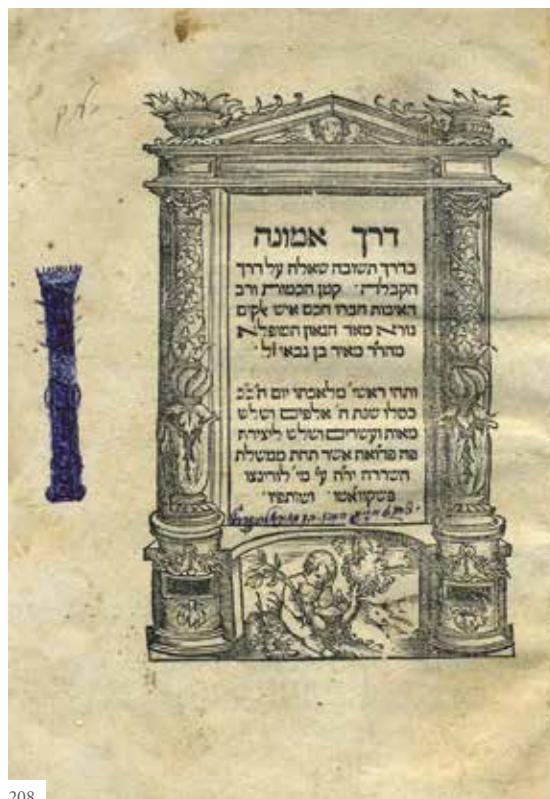 דרך אמונה
בדרך תשובה שאלה על דרך
הקבלה קטן הכמות ורב
האיכות חברו חכם איש אלקים
נורא מאד הגאון המופלא
כמהר"ר מאיר בן גבאי ז"ל
ותהי ראשי' מלאכתו יום ה'
כסלו שנת ה' אלפים ושלש
מאות ועשרים ושלש ליצירת
פה פדואה אשר תחת ממשלת
השררה יר"ה ע"י מי' לורינצו
פשקוואטו ושותפיו
208